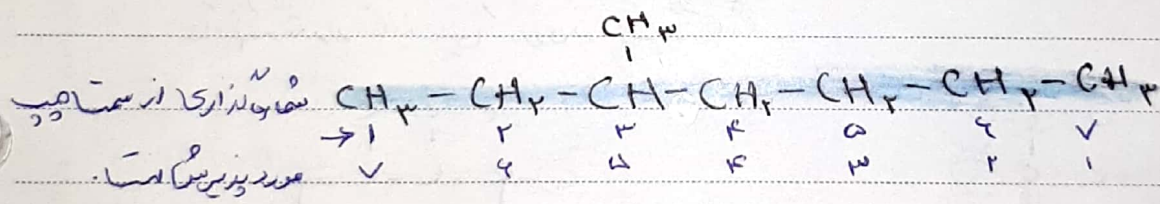 CH۳
شماره‌گذاری از سمت چپ CH۳ - CH۲ - CH - CH۲ - CH۲ - CH۲ - CH۳
→ ۱ ۲ ۳ ۴ ۵ ۶ ۷
مورد پذیرش است. ۷ ۶ ۵ ۴ ۳ ۲ ۱